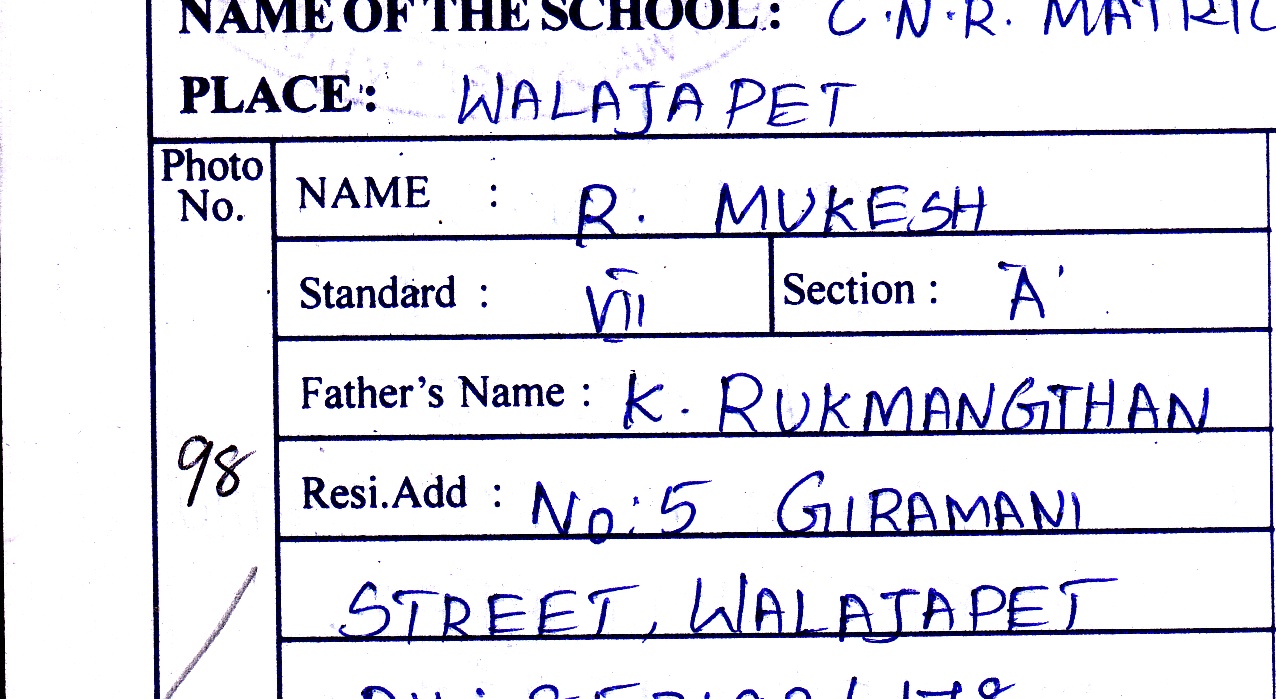 NAME OF THE SCHOOL: C.N.R. MATRIC
PLACE: WALAJAPET
Photo No.
NAME : R. MUKESH
Standard : VII Section : 'A'
Father's Name : K. RUKMANGTHAN
98
Resi.Add : No:5 GIRAMANI
STREET, WALAJAPET